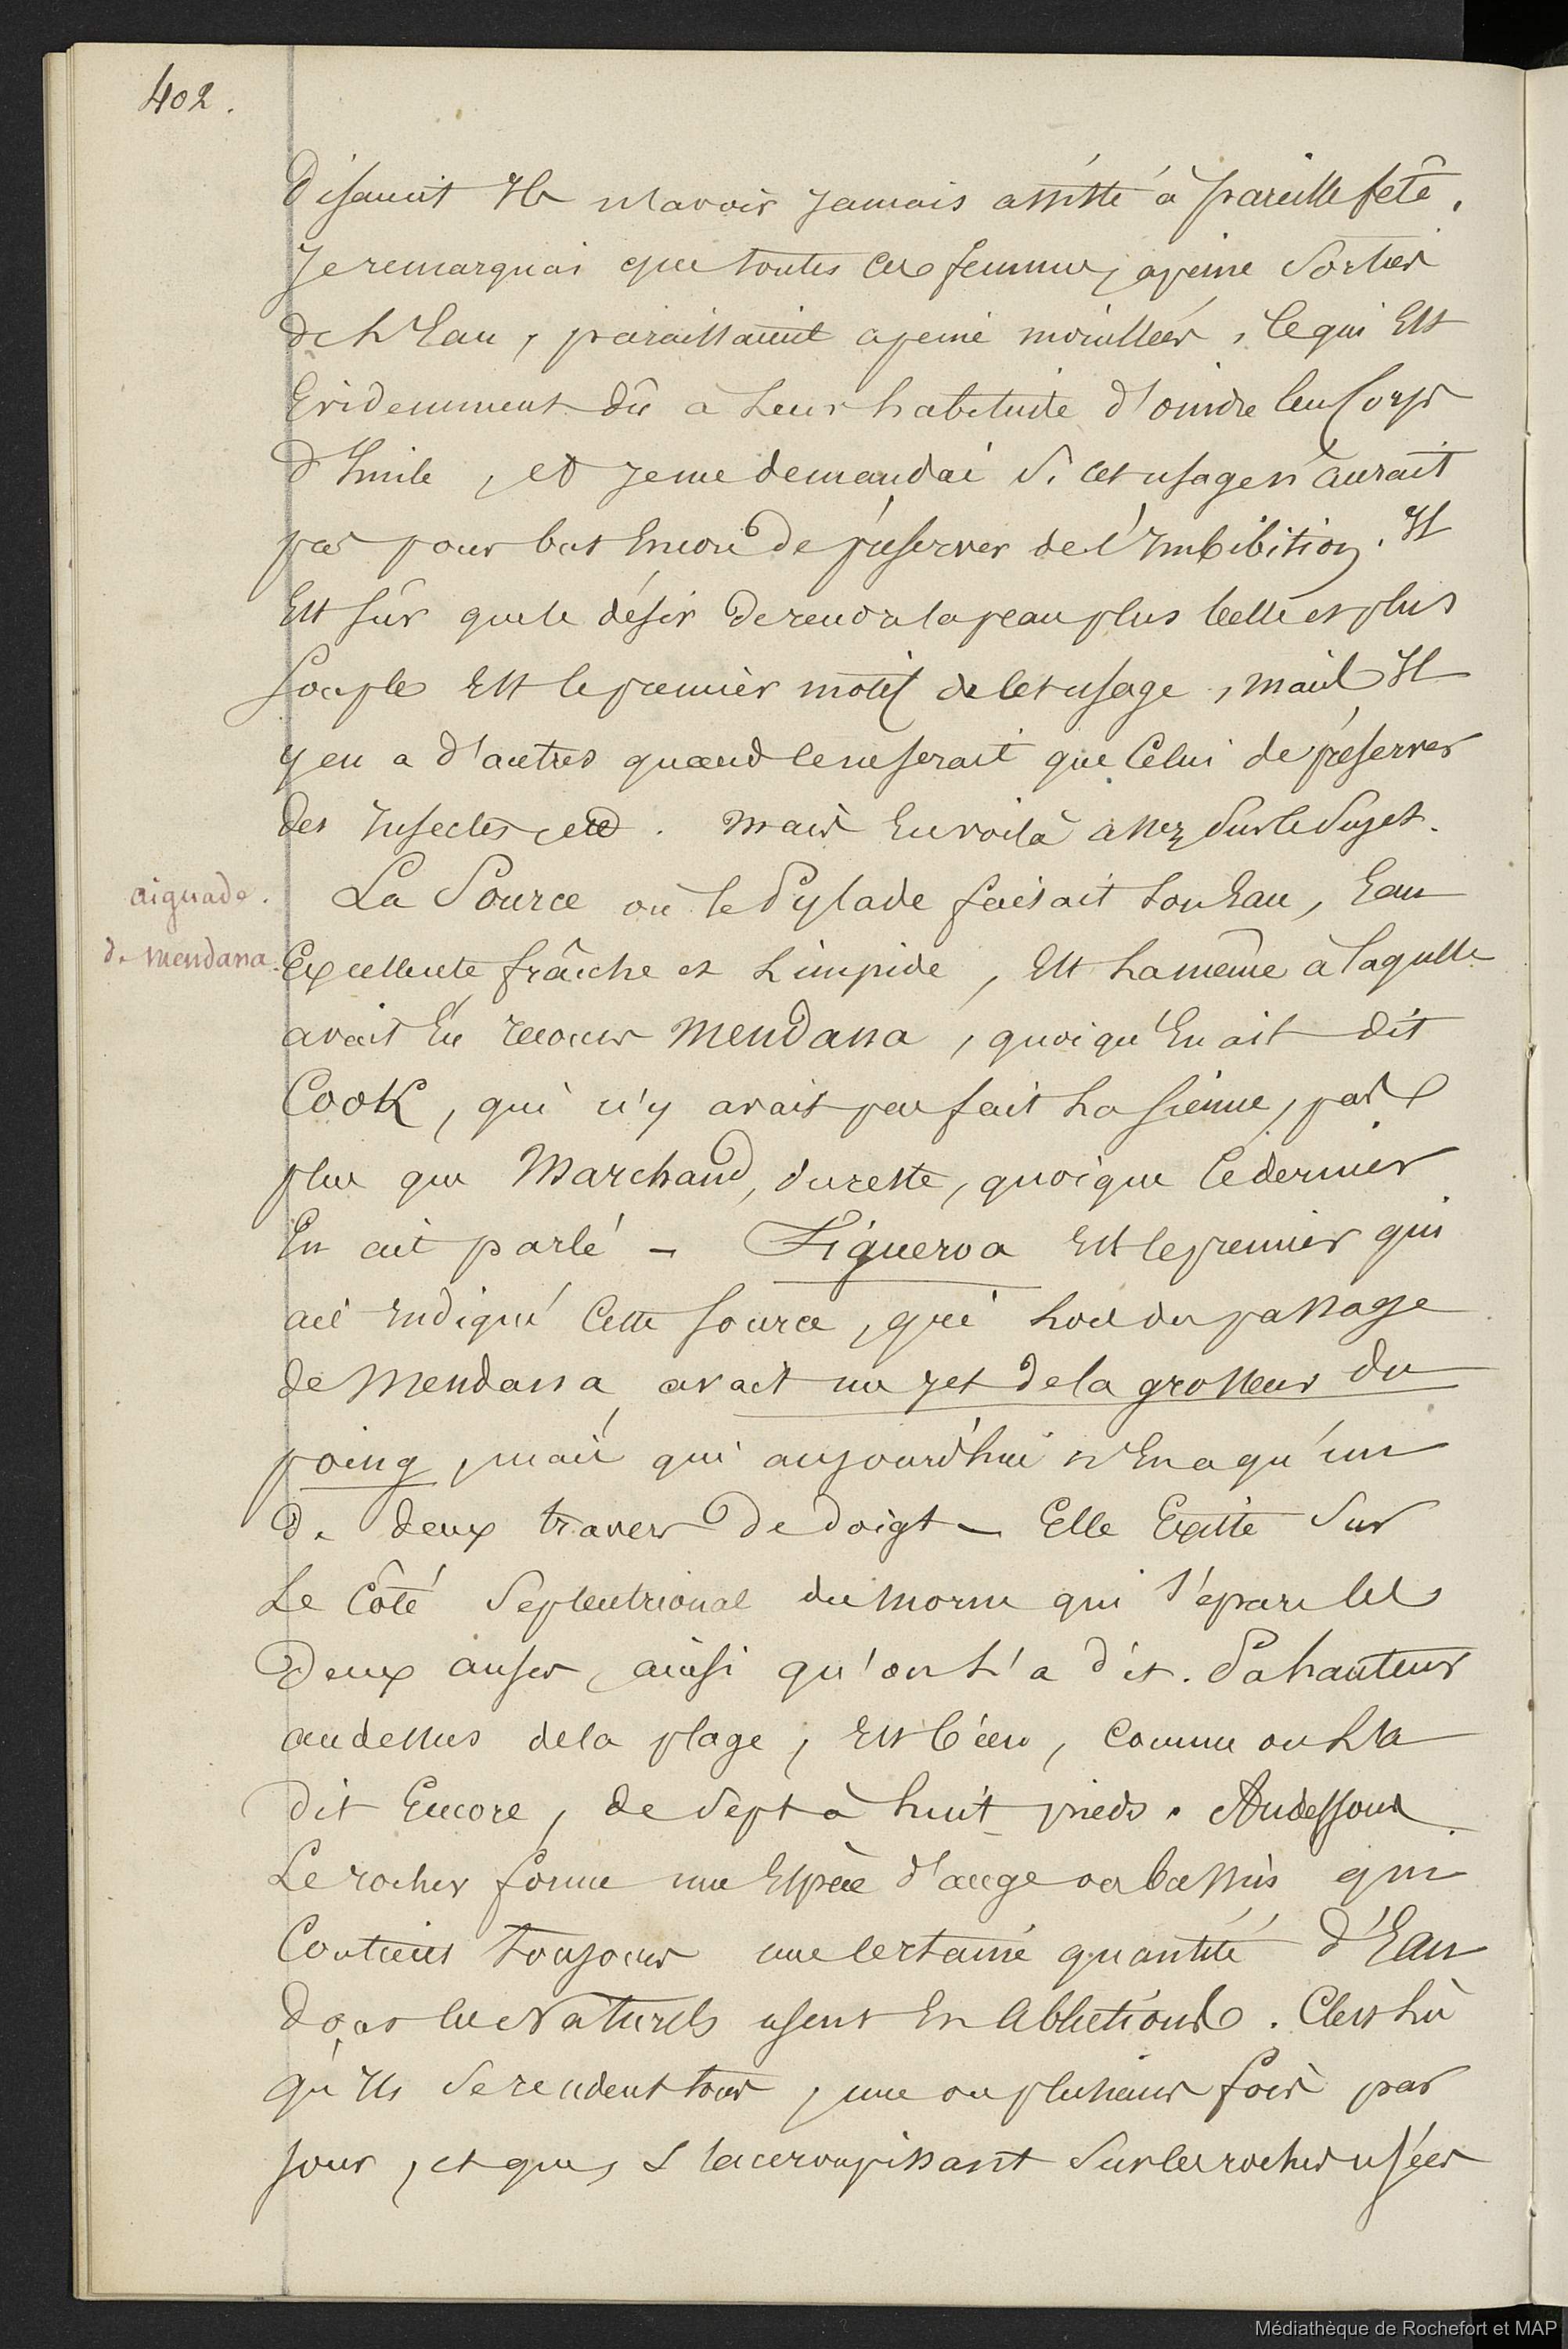 402.
disaient Ils n'avoir Jamais assisté à pareille fête.
Je remarquai que toutes ces femmes, apeine Sorties
de L'Eau, paraissaient apeine mouillées, Ce qui Est
Evidemment dû a Leur habitude d'oindre leur Corps
d'Huile, et Je me demandai Si cet usage n'aurait
pas pour but Encore de préserver de l'Imbibition. Il
Est sûr que le désir de rendre la peau plus belle et plus
Souple Est le premier motif de Cet usage, mais Il
y en a d'autres quand Ce ne serait que Celui de préserver
des Insectes, etc. Mais En voilà assez Sur le Sujet.
aiguade.
de Mendana.
La Source où le Pylade faisait Son Eau, Eau
Excellente fraîche et Limpide, Est La même à laquelle
avait Eu recours Mendana, quoiqu'En ait dit
Cook, qui n'y avait pas fait La Sienne, pas
plus que Marchand, du reste, quoique Ce dernier
En ait parlé - Figueroa Est le premier qui
ait Indiqué Cette Source, qui lors du passage
de Mendana avait un Jet de la grosseur du
poing, mais qui aujourd'hui n'En a qu'un
de deux travers de doigt - Elle Existe Sur
Le Côté Septentrional du Morne qui Sépare les
deux anses, ainsi qu'on L'a dit. Sa hauteur
audessus de la plage, Est bien, Comme on L'a
dit Encore, de Sept à huit pieds. Audessous
Le rocher forme une Espèce d'auge ou bassin qui
Contient Toujours une Certaine quantité d'Eau
dont les Naturels usent En Ablutions. C'est Là
qu'Ils Se rendent tous, une ou plusieurs fois par
Jour, et que, S'accroupissant Sur les roches usées
Médiathèque de Rochefort et MAP